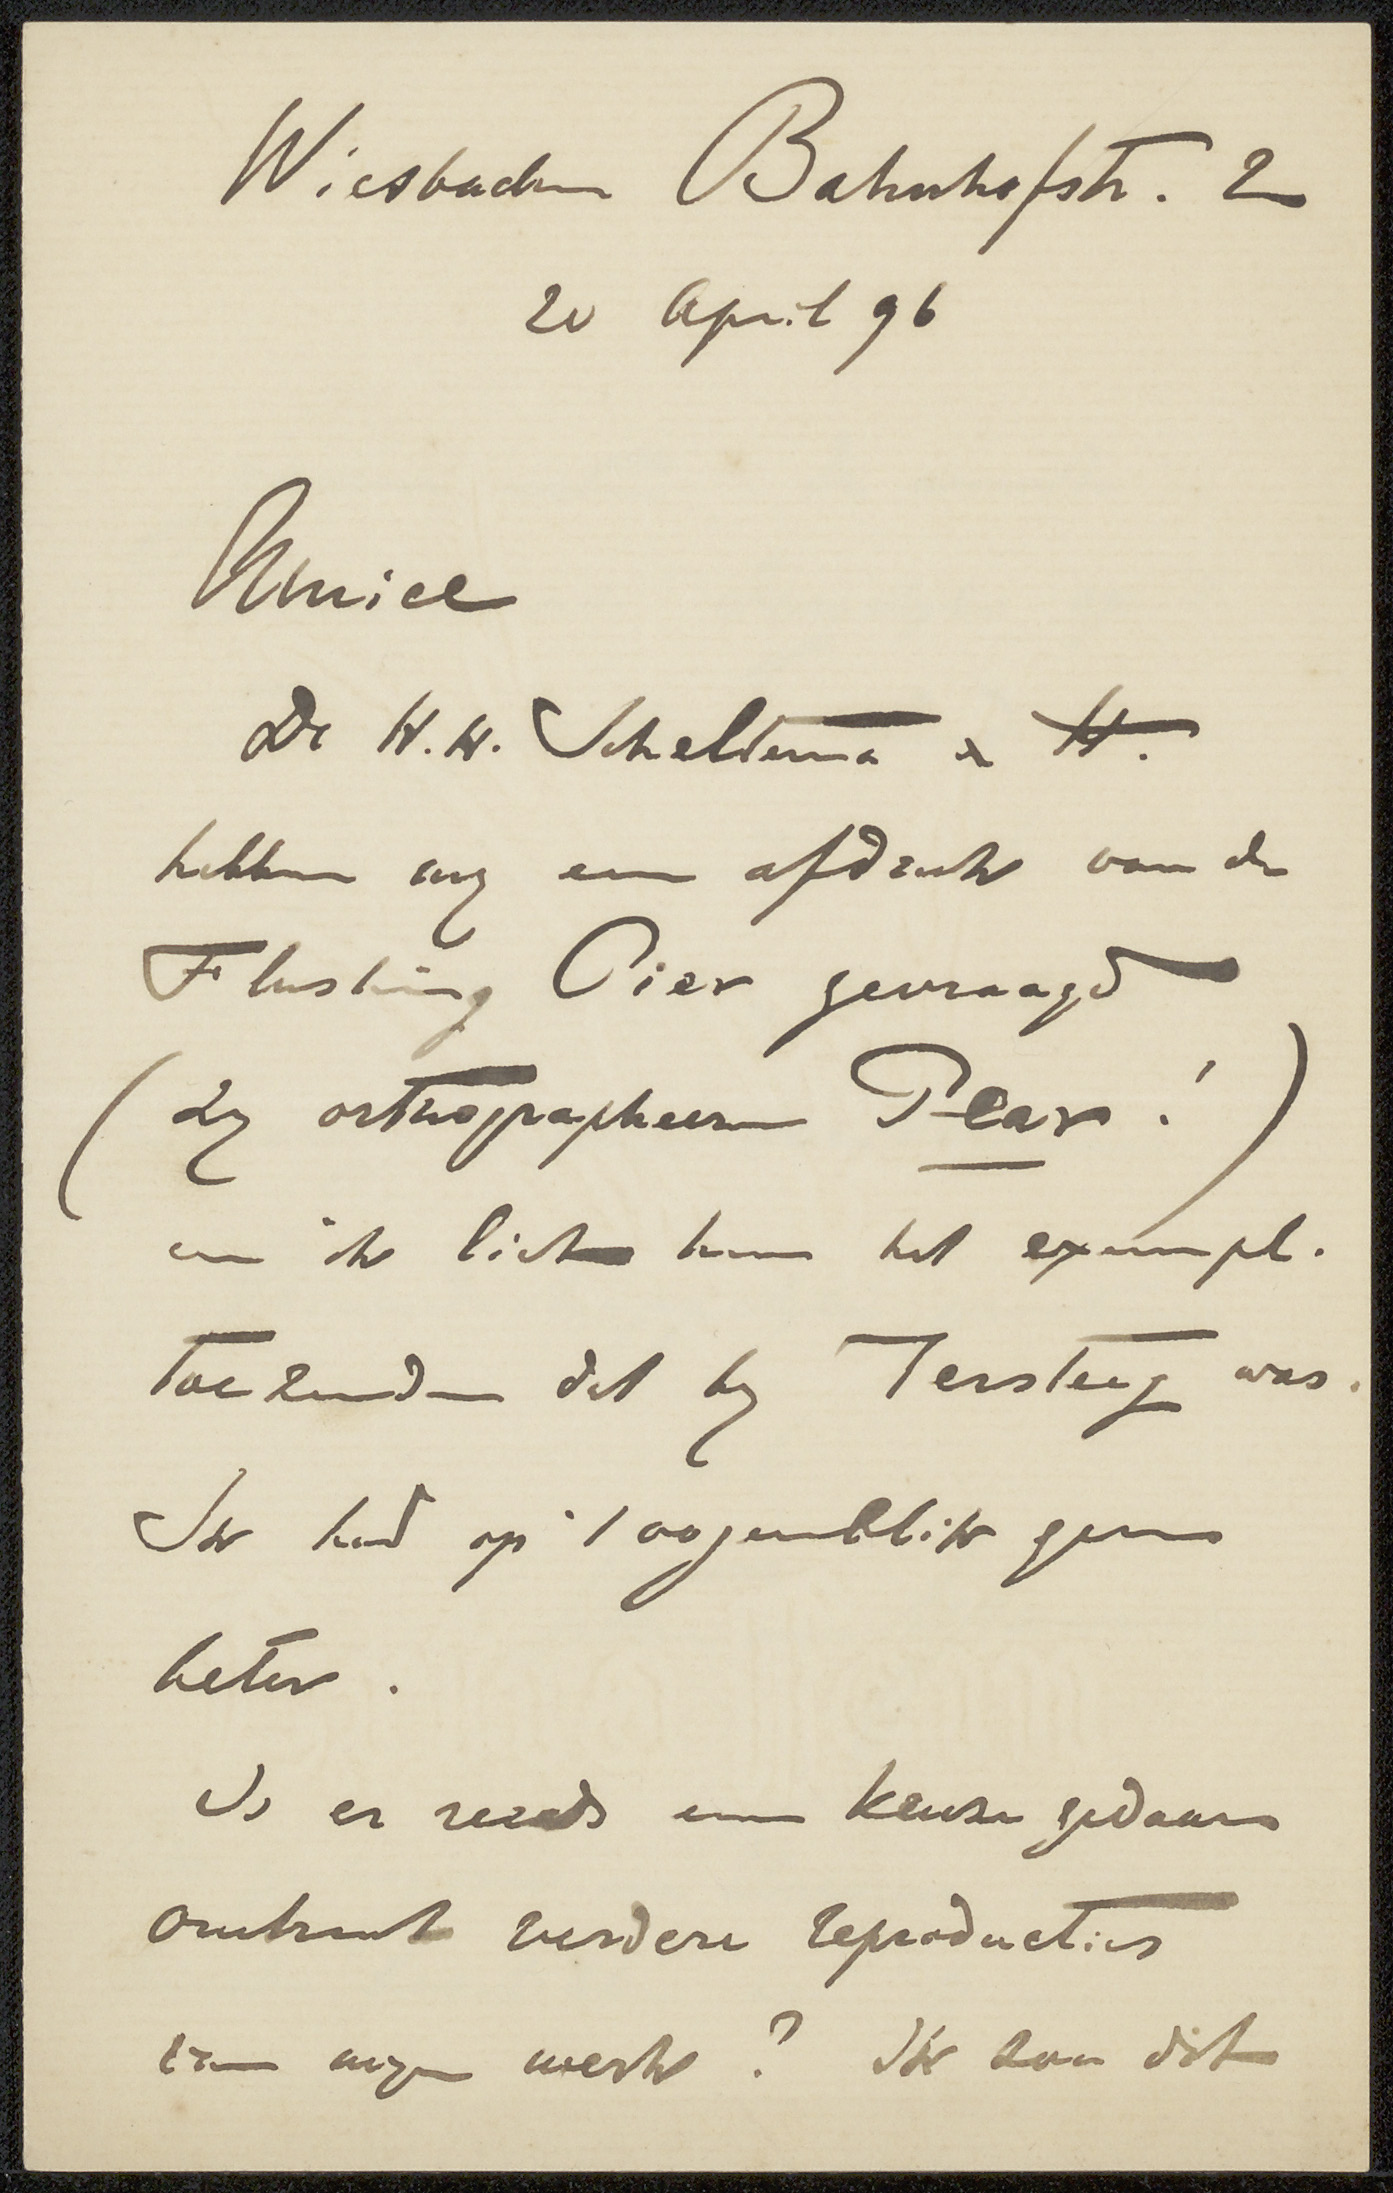 Wiesbaden Bahnhofstr. 2
20 April 96
Amice
De H.H. Scheltema & H.
hebben my een afdruk van de
Flushing Pier gevraagd
(Zy orthographeeren Pear!)
en ik liet hun het exempl.
toezenden dat by Tersteeg was.
Ik had op 't oogenblik geen
beter.
Is er reeds een keuze gedaan
omtrent verdere reproducties
van myn werk? Ik zou dit